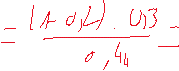 = (1-0,4).0,3 / 0,44 =